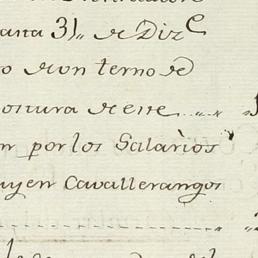 asta 31,, de Diz.e
o de un terno de
ostura de este
n por los Salarios
uyen Cavallerangos